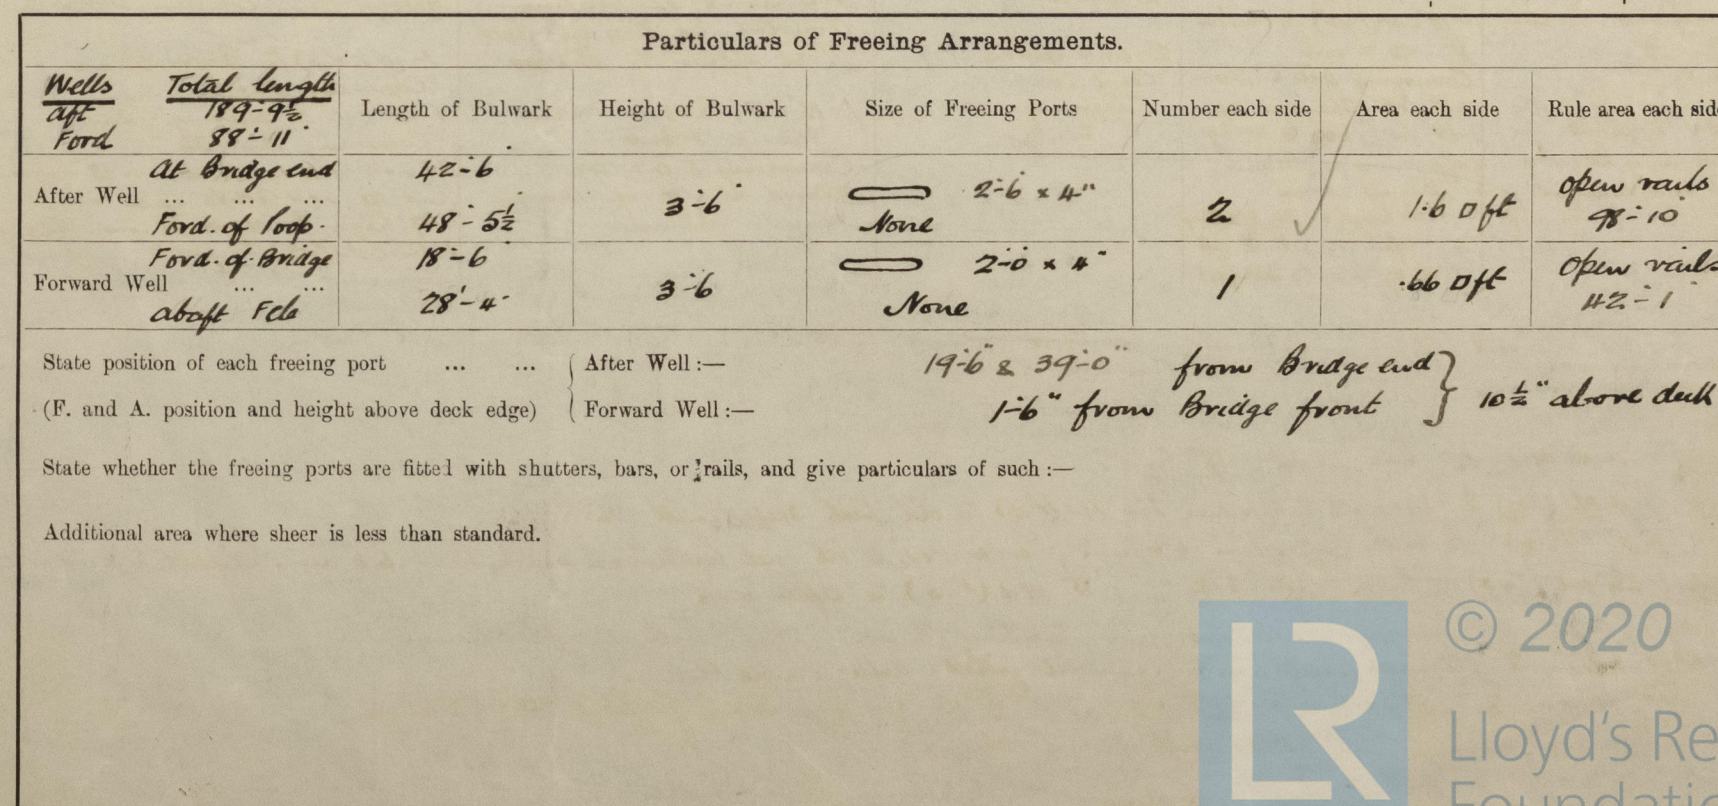 Particulars of Freeing Arrangements.
Wells Total length
aft 189'-9½"
Ford 88'-11"
Length of Bulwark Height of Bulwark Size of Freeing Ports Number each side Area each side Rule area each sid
At Bridge end 42'-6" 2'-6 x 4" open rails
After Well ... ... ... 3'-6" 2 1.6 □ ft 98'-10
Ford. of Poop. 48'-5½ None
Ford. of Bridge 18'-6 2'-0 x 4" open rails
Forward Well ... ... 3'-6 1 .66 □ ft 42'-1
abaft Fcle 28'-4" None
State position of each freeing port ... ... After Well :— 19'-6" & 39'-0" from Bridge end
(F. and A. position and height above deck edge) Forward Well :— 1'-6" from Bridge front } 10½" above deck
State whether the freeing ports are fitted with shutters, bars, or rails, and give particulars of such :—
Additional area where sheer is less than standard.
LR
© 2020
Lloyd's Re
Foundatio